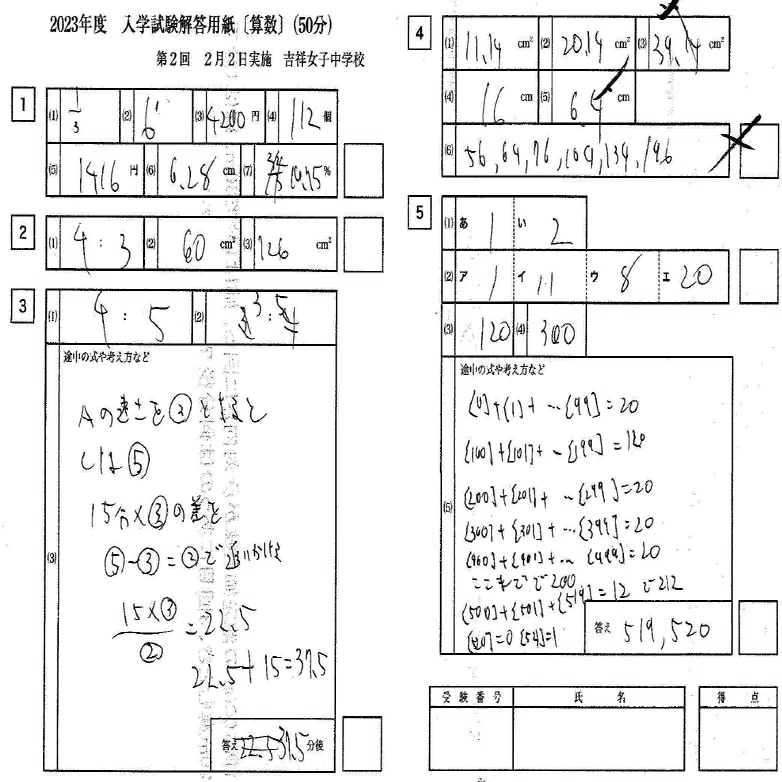 2023年度 入学試験解答用紙〔算数〕(50分)
第2回 2月2日実施 吉祥女子中学校
1
(1) 1/3 (2) 6 (3) 4200 円 (4) 112 個
(5) 1416 円 (6) 6.28 cm (7) 10.75 %
2
(1) 4 : 3 (2) 60 cm² (3) 126 cm²
3
(1) 4 : 5 (2) 3 : 5
途中の式や考え方など
(3)
Aの速さを③とすると
Lは⑤
15分×③の差を
⑤-③=②で追いかける
15×③/② =22.5
22.5+15=37.5
答え 37.5 分後
4
(1) 11.14 cm² (2) 20.14 cm² (3) 39.14 cm²
(4) 16 cm (5) 6.4 cm
(6) 56, 64, 76, 104, 134, 196
5
(1) あ 1 い 2
(2) ア 1 イ 11 ウ 8 エ 20
(3) 120 (4) 300
途中の式や考え方など
(5)
[0]+[1]+…[99]=20
[100]+[101]+…[199]=120
[200]+[201]+…[299]=20
[300]+[301]+…[399]=20
[400]+[401]+…[499]=20
ここまでで200
[500]+[501]+[519]=12 で212
[520]=0 [521]=1
答え 519, 520
受験番号 氏名 得点